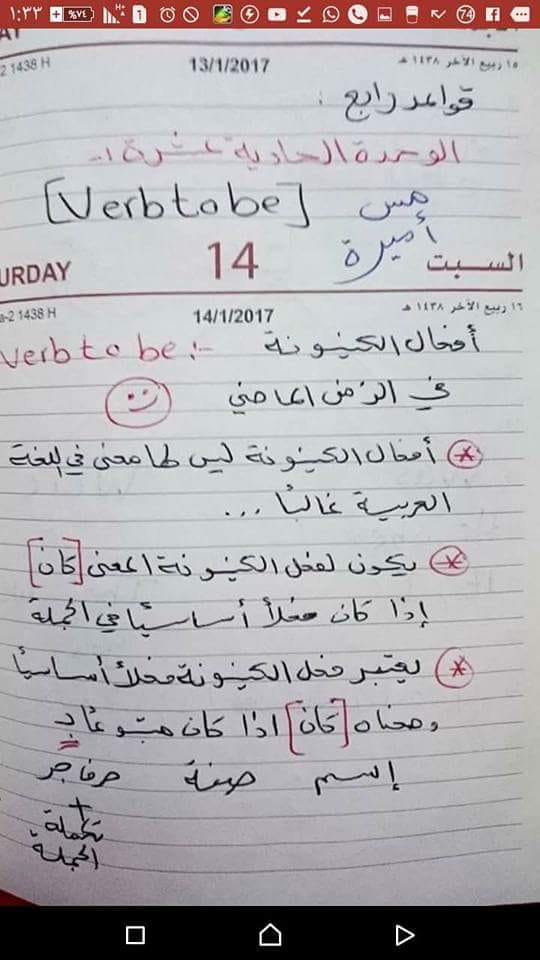 ١:٣٣ %٧٤ H+ 1 74
2 1438 H 13/1/2017 ١٥ ربيع الآخر ١٤٣٨ هـ
قواعد رابع :
الوحدة الحادية عشرة :-
[Verb to be] مس أميرة
URDAY 14 السبت
a-2 1438 H 14/1/2017 ١٦ ربيع الآخر ١٤٣٨ هـ
أفعال الكينونة verb to be :-
في الزمن الماضي
* أفعال الكينونة ليس لها معنى في اللغة
العربية غالبًا ...
* يكون لفعل الكينونة المعنى [كان]
إذا كان فعلاً أساسيًا في الجملة
* يعتبر فعل الكينونة فعلاً أساسيًا
ومعناه [كان] اذا كان متبوعًا بـِ
إسم صفة حرف جر
+
تكملة
الجملة